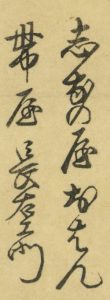 志なの屋おはん
帯屋長右衛門